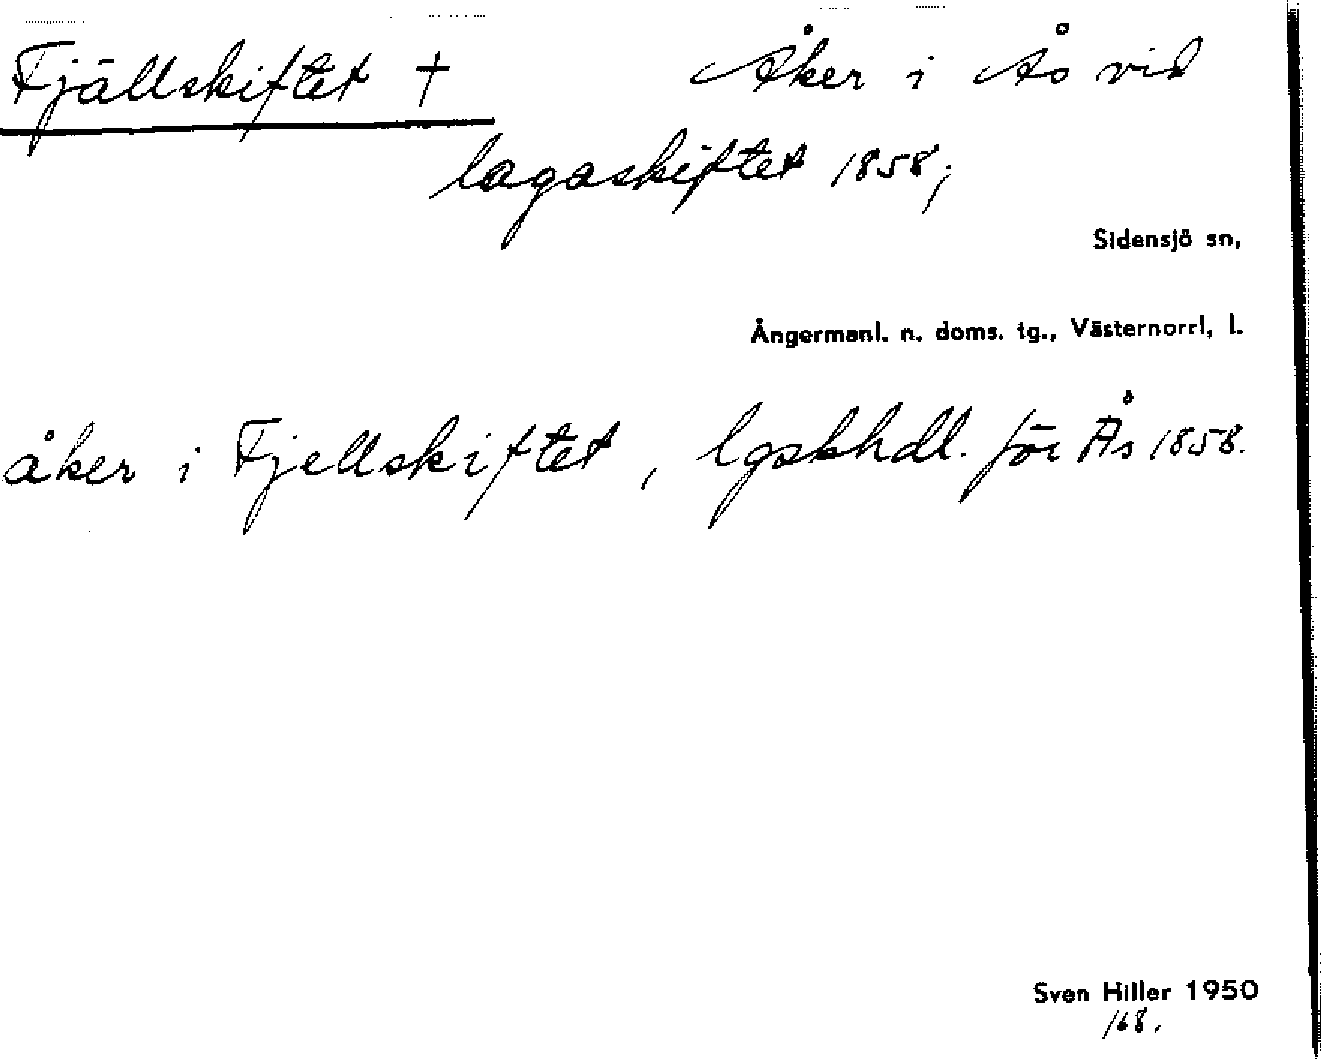 Fjällskiftet † Åker i Ås vid
lagaskiftet 1858;
Sidensjö sn,
Ångermanl. n. doms. tg., Västernorrl. l.
åker i Fjellskiftet, lgskhdl. för Ås 1858.
Sven Hiller 1950
168.